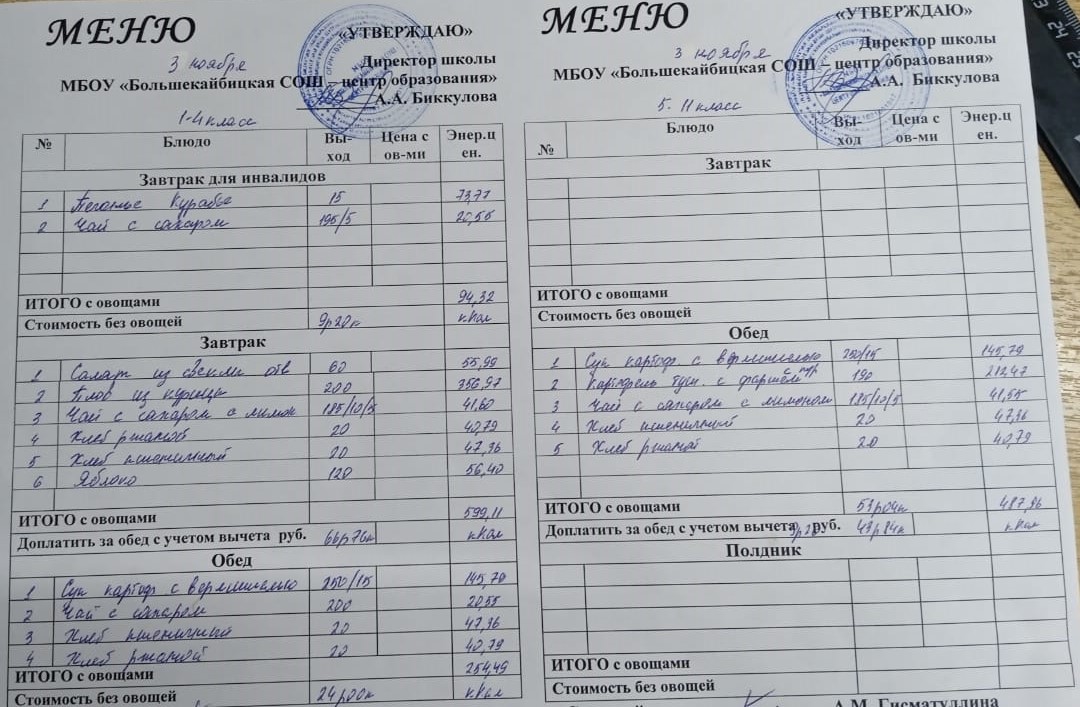 МЕНЮ
«УТВЕРЖДАЮ»
3 ноября
Директор школы
МБОУ «Большекайбицкая СОШ – центр образования»
А.А. Биккулова
1-4 класс
№ Блюдо Вы-ход Цена с ов-ми Энер.ц ен.
Завтрак для инвалидов
1 Печенье Курабье 15 73,77
2 Чай с сахаром 195/5 20,55
ИТОГО с овощами 94,32
Стоимость без овощей 9р20к кКал
Завтрак
1 Салат из свежих 60 55,99
2 Плов из курицы 200 356,97
3 Чай с сахаром с лимон 185/10/5 41,60
4 Хлеб ржаной 20 40,79
5 Хлеб пшеничный 20 47,36
6 Яблоко 120 56,40
ИТОГО с овощами 599,11
Доплатить за обед с учетом вычета руб. 66р76к кКал
Обед
1 Суп картоф с вермишелью 250/15 145,79
2 Чай с сахаром 200 20,55
3 Хлеб пшеничный 20 47,36
4 Хлеб ржаной 20 40,79
ИТОГО с овощами 254,49
Стоимость без овощей 24р00к кКал
МЕНЮ
«УТВЕРЖДАЮ»
3 ноября
Директор школы
МБОУ «Большекайбицкая СОШ – центр образования»
А.А. Биккулова
5-11 класс
№ Блюдо Вы-ход Цена с ов-ми Энер.ц ен.
Завтрак
ИТОГО с овощами
Стоимость без овощей
Обед
1 Суп картоф. с вермишелью 250/15 145,79
2 Картофель туш. с фаршем 190 212,47
3 Чай с сахаром с лимоном 185/10/5 41,55
4 Хлеб пшеничный 20 47,36
5 Хлеб ржаной 20 40,79
ИТОГО с овощами 53р04к 487,96
Доплатить за обед с учетом вычета руб. 43р84к кКал
Полдник
ИТОГО с овощами
Стоимость без овощей
А.М. Гисматуллина